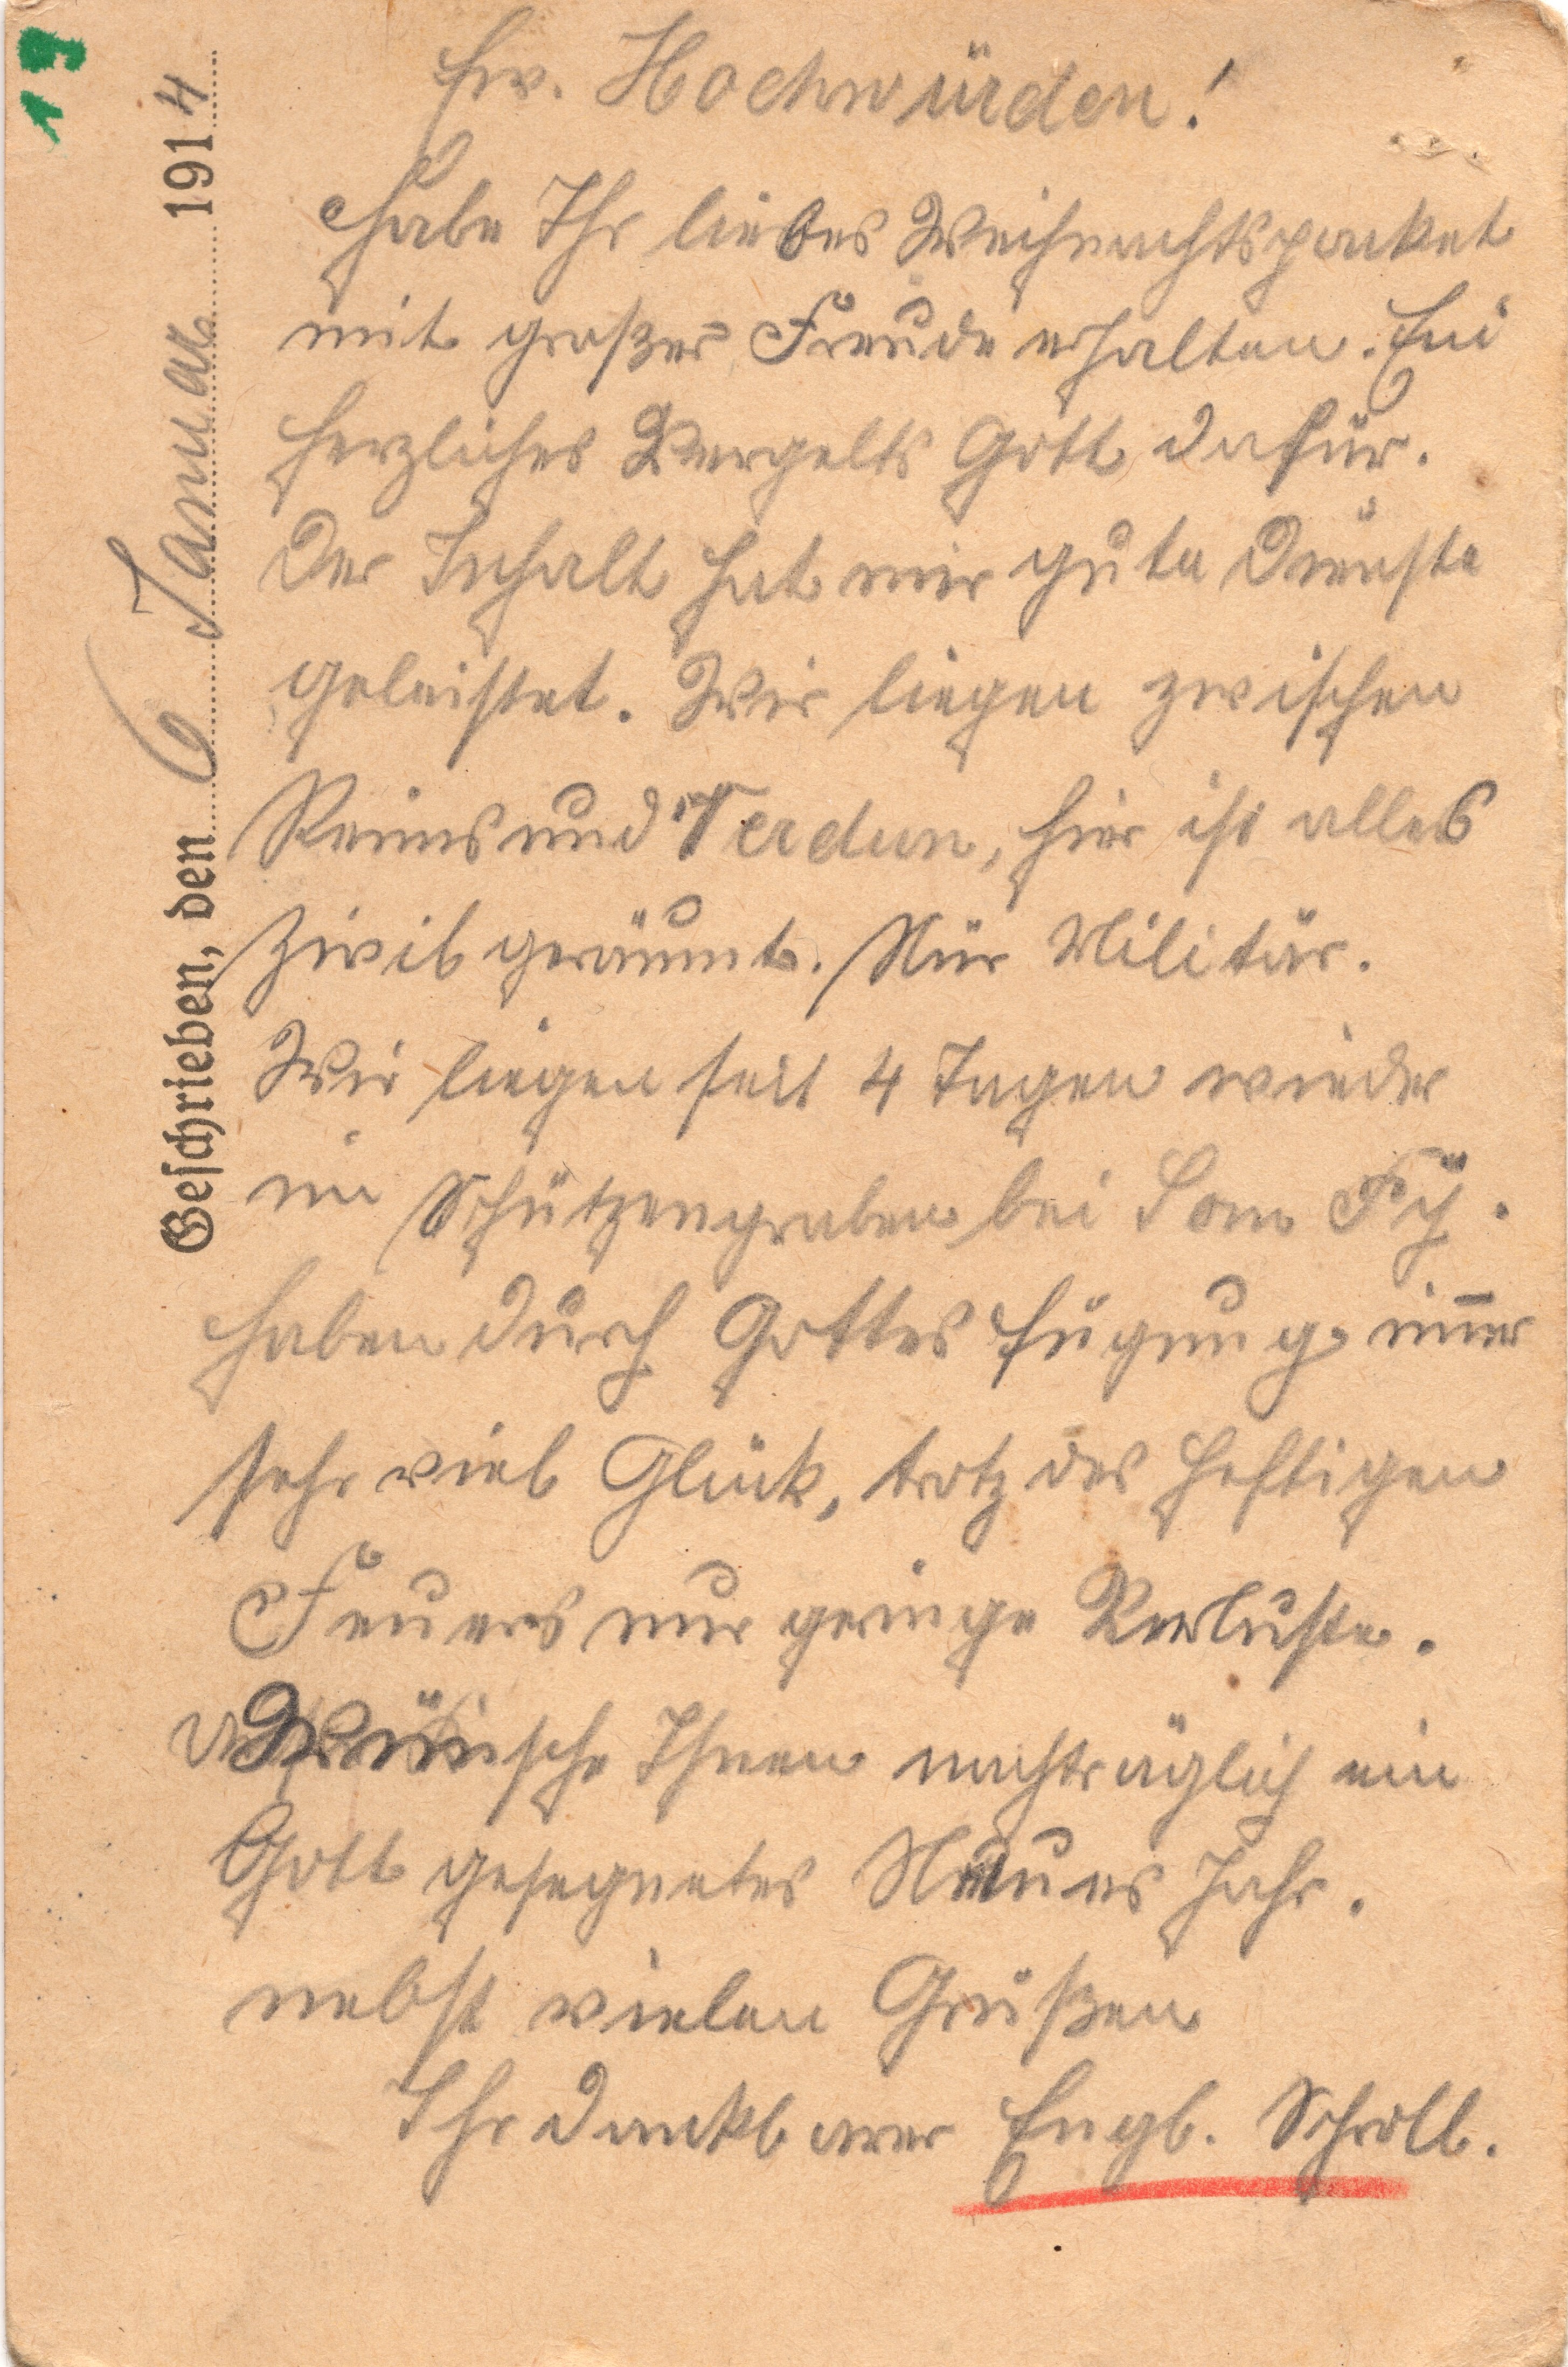 19
Geschrieben, den 6 Januar 1914
Ew. Hochwürden!
Habe Ihr liebes Weihnachtspacket
mit großer Freude erhalten. Ein
herzliches Vergelts Gott dafür.
Der Inhalt hat mir gute Dienste
geleistet. Wir liegen zwischen
Reims und Verdun, hier ist alles
Zivil geräumt. Nur Militär.
Wir liegen seit 4 Tagen wieder
im Schützengraben bei Som Pÿ.
haben durch Gottes Fügung im̅er
sehr viel Glück, trotz des heftigen
Feuers nur geringe Verluste.
Wünsche Ihnen nachträglich ein
Gott gesegnetes Neues Jahr.
nebst vielen Grüßen
Ihr dankbarer Engb. Schroll.